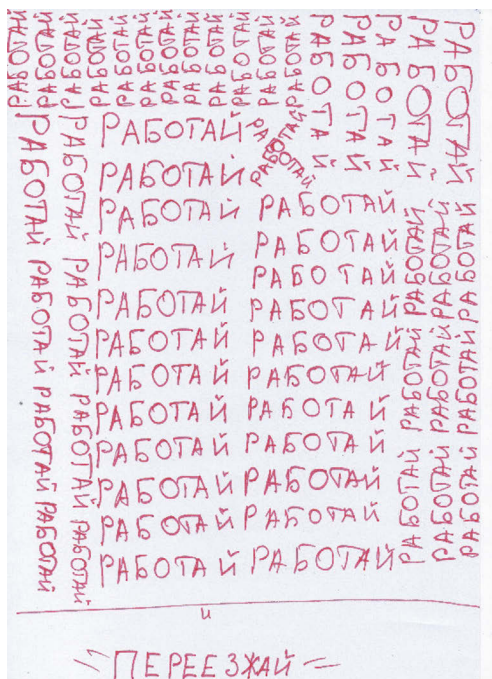 РАБОТАЙ РАБОТАЙ РАБОТАЙ РАБОТАЙ РАБОТАЙ РАБОТАЙ РАБОТАЙ РАБОТАЙ РАБОТАЙ РАБОТАЙ РАБОТАЙ РАБОТАЙ
РАБОТАЙ
РАБОТАЙ
РАБОТАЙ
РАБОТАЙ
РАБОТАЙ
РАБОТАЙ РАБОТАЙ РАБОТАЙ РАБОТАЙ
РАБОТАЙ РАБОТАЙ РАБОТАЙ РАБОТАЙ
РАБОТАЙ РАБОТАЙ
РАБОТАЙ РАБОТАЙ
РАБОТАЙ РАБОТАЙ
РАБОТАЙ РАБОТАЙ
РАБОТАЙ РАБОТАЙ
РАБОТАЙ РАБОТАЙ
РАБОТАЙ РАБОТАЙ
РАБОТАЙ РАБОТАЙ
РАБОТАЙ РАБОТАЙ
РАБОТАЙ РАБОТАЙ
РАБОТАЙ РАБОТАЙ
РАБОТАЙ РАБОТАЙ
РАБОТАЙ
РАБОТАЙ РАБОТАЙ РАБОТАЙ
РАБОТАЙ РАБОТАЙ РАБОТАЙ
РАБОТАЙ РАБОТАЙ РАБОТАЙ
и
ПЕРЕЕЗЖАЙ